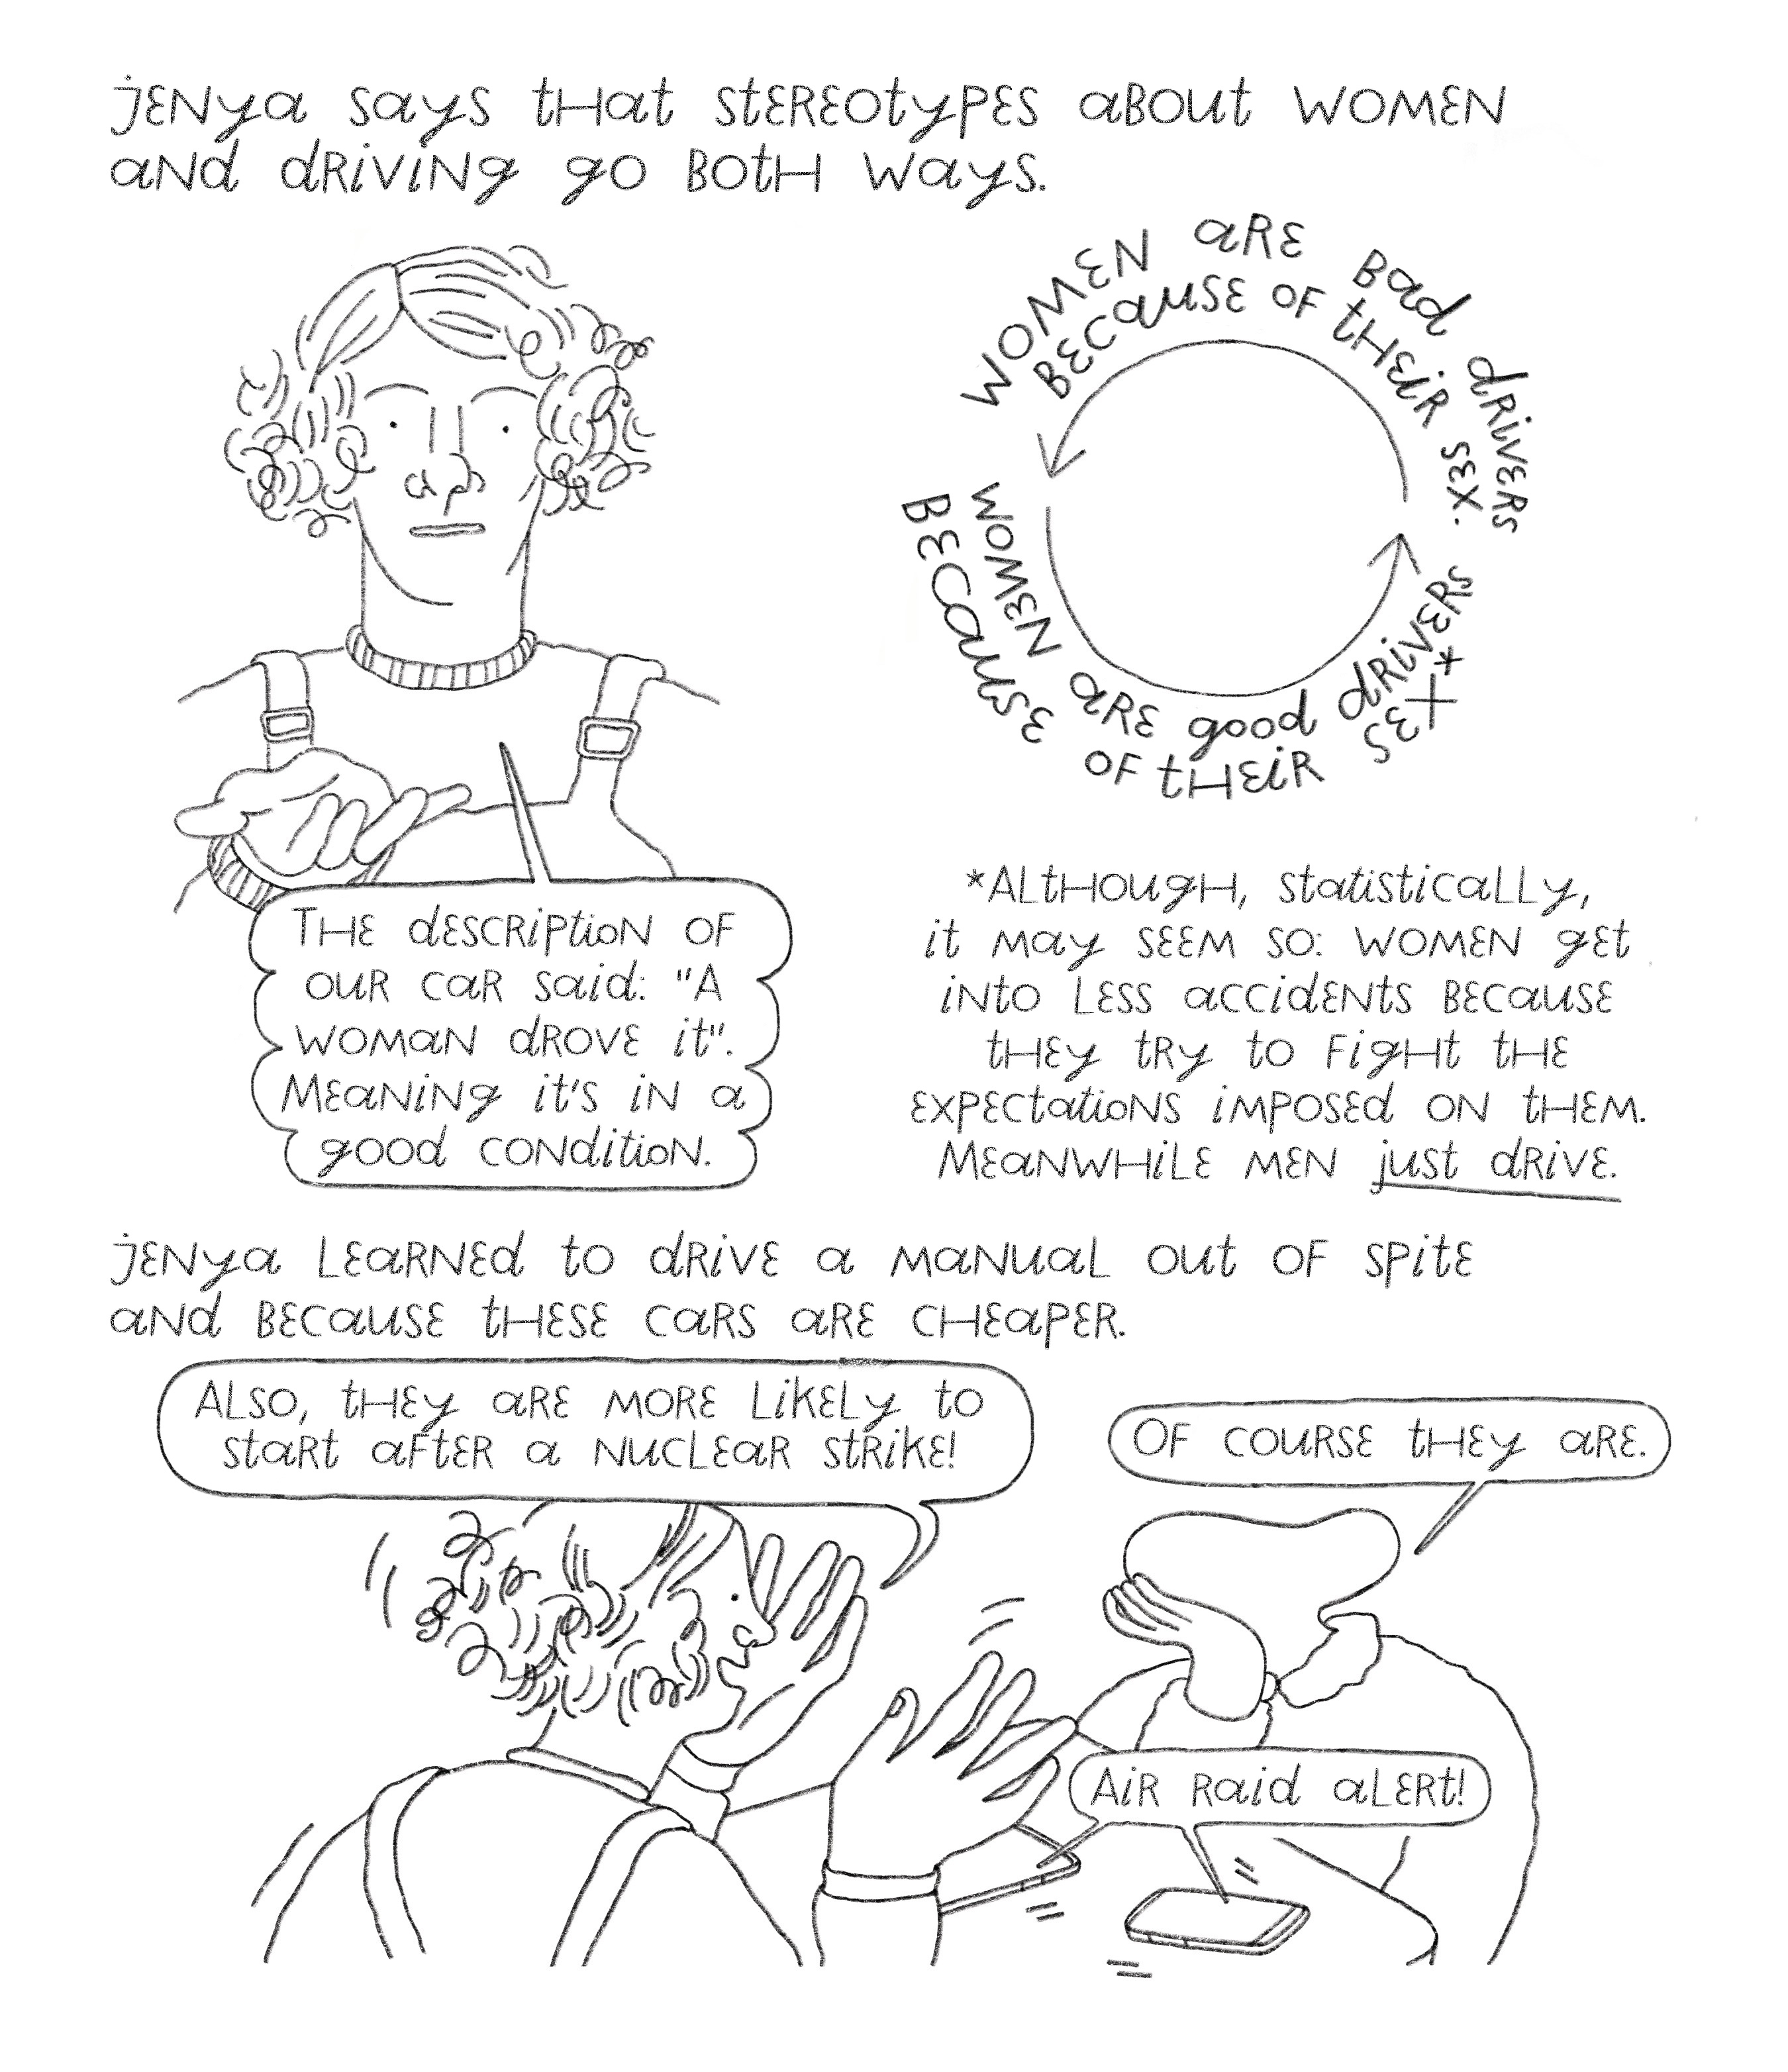 jENya says tHat stEREotypEs aBout WOMEN
aNd dRiviNg go BotH Ways.
WOMEN aRE Bad dRivERs
BEcausE OF tHEiR sEX.
WOMEN aRE good dRivERs
BEcausE OF tHEiR sEX*
THE dEscRiptioN OF
OuR caR said: "A
WOMaN dROvE it".
MEaNiNg it's iN a
good coNditioN.
*ALtHougH, statisticaLLy,
it May sEEM so: WOMEN gEt
iNto LEss accidENts BEcausE
tHEy tRy to FigHt tHE
ExpEctatioNs iMposEd ON tHEM.
MEaNWHiLE MEN just dRivE.
jENya LEaRNEd to dRivE a MaNuaL out OF spitE
aNd BEcausE tHEsE caRs aRE cHEapER.
ALsO, tHEy aRE MORE LikELy to
staRt aFtER a NucLEaR stRikE!
OF couRsE tHEy aRE.
AiR Raid aLERt!